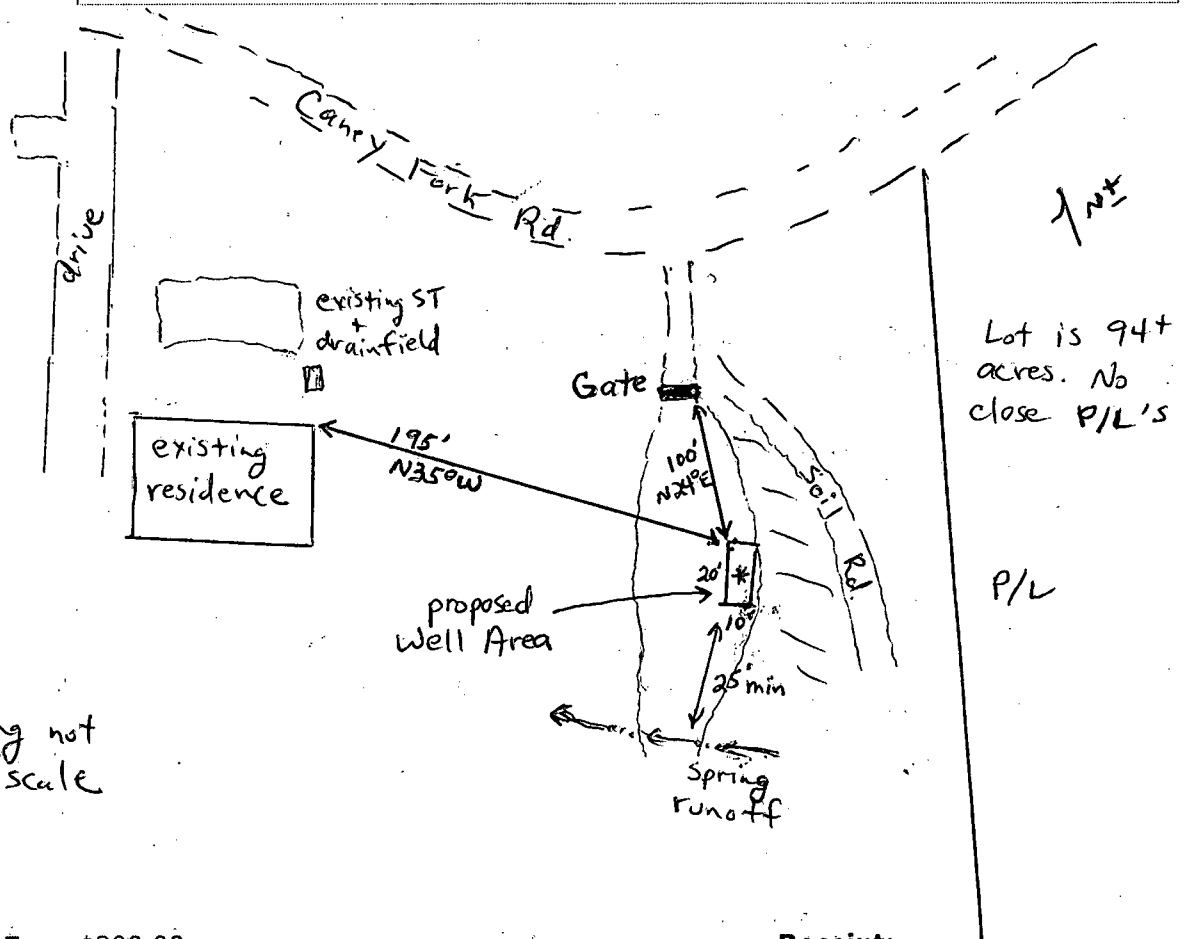 Caney Fork Rd.
drive
N±
existing ST
+
drainfield
Lot is 94+
acres. No
close P/L's
Gate
existing
residence
195'
N35°W
100'
N24°E
Soil
Rd.
20'
*
10'
P/L
proposed
Well Area
25' min
g not
scale
Spring
runoff